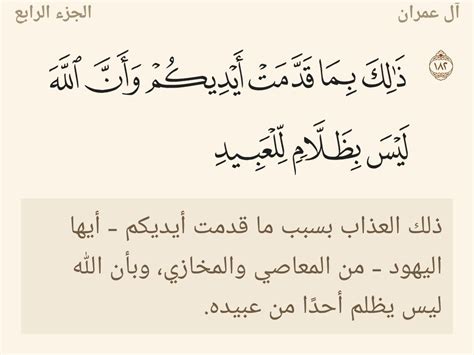 آل عمران
الجزء الرابع
ذَٰلِكَ بِمَا قَدَّمَتۡ أَيۡدِيكُمۡ وَأَنَّ ٱللَّهَ ١٨٢
لَيۡسَ بِظَلَّامٖ لِّلۡعَبِيدِ
ذلك العذاب بسبب ما قدمت أيديكم - أيها
اليهود - من المعاصي والمخازي، وبأن الله
ليس يظلم أحدًا من عبيده.